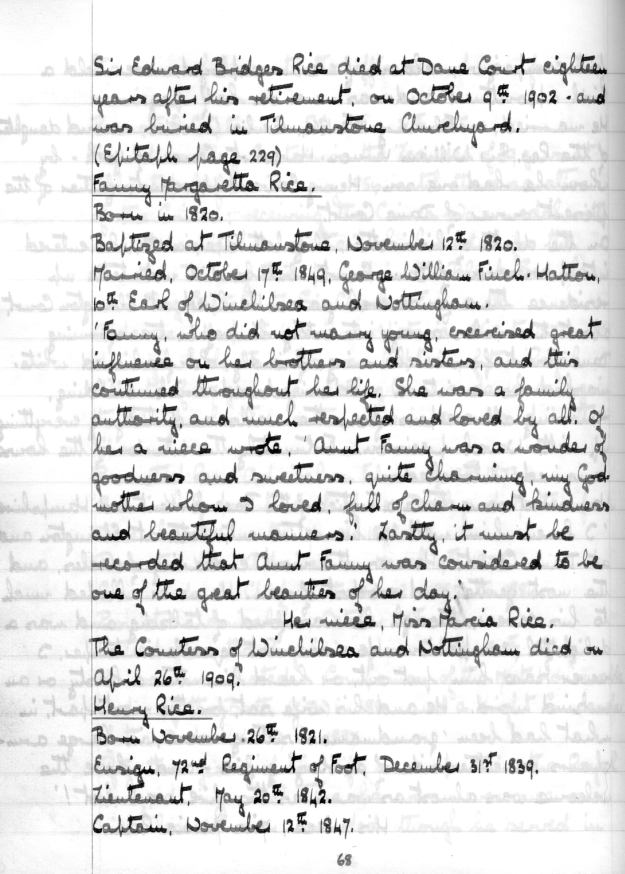 Sir Edward Bridges Rice died at Dane Court eighteen
years after his retirement, on October 9th 1902 - and
was buried in Tilmanstone Churchyard.
(Epitaph page 229)
Fanny Margaretta Rice.
Born in 1820.
Baptized at Tilmanstone, November 12th 1820.
Married, October 17th 1849, George William Finch-Hatton,
10th Earl of Winchilsea and Nottingham.
'Fanny, who did not marry young, exercised great
influence on her brothers and sisters, and this
continued throughout her life. She was a family
authority, and much respected and loved by all. Of
her a niece wrote, 'Aunt Fanny was a wonder of
goodness and sweetness, quite charming, my God-
mother whom I loved, full of charm and kindness
and beautiful manners.' Lastly, it must be
recorded that Aunt Fanny was considered to be
one of the great beauties of her day.'
Her niece, Miss Marcia Rice.
The Countess of Winchilsea and Nottingham died on
April 26th 1909.
Henry Rice.
Born November 26th 1821.
Ensign, 72nd Regiment of Foot, December 31st 1839.
Lieutenant, May 20th 1842.
Captain, November 12th 1847.
68